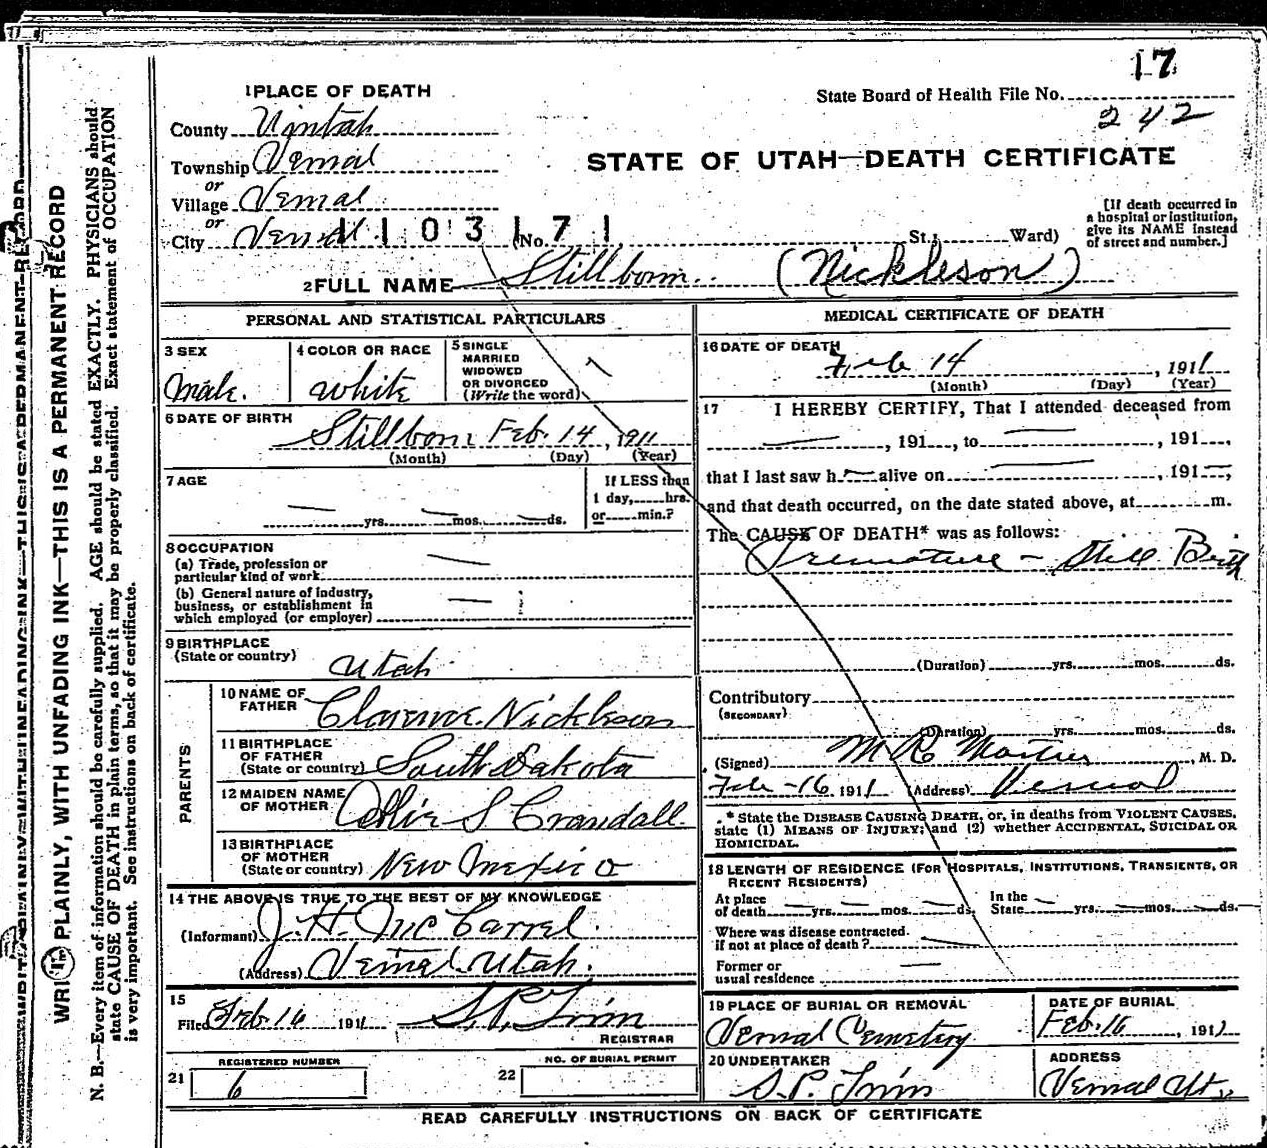 17
1 PLACE OF DEATH
State Board of Health File No.
242
County Uintah
Township Vernal
or
Village Vernal
or
City Vernal (No. St.; Ward)
1103171
STATE OF UTAH—DEATH CERTIFICATE
[If death occurred in
a hospital or institution,
give its NAME instead
of street and number.]
2 FULL NAME Stillborn. (Nickleson)
PERSONAL AND STATISTICAL PARTICULARS
3 SEX
Male.
4 COLOR OR RACE
White
5 SINGLE
MARRIED
WIDOWED
OR DIVORCED
(Write the word)
6 DATE OF BIRTH
Stillborn Feb. 14, 1911
(Month) (Day) (Year)
7 AGE
yrs. mos. ds.
If LESS than
1 day, hrs.
or min.?
8 OCCUPATION
(a) Trade, profession or
particular kind of work
(b) General nature of industry,
business, or establishment in
which employed (or employer)
9 BIRTHPLACE
(State or country)
Utah
PARENTS
10 NAME OF
FATHER
Clarence Nickleson
11 BIRTHPLACE
OF FATHER
(State or country)
South Dakota
12 MAIDEN NAME
OF MOTHER
S Crandall
13 BIRTHPLACE
OF MOTHER
(State or country)
New Mexico
14 THE ABOVE IS TRUE TO THE BEST OF MY KNOWLEDGE
(Informant) J. H. McCarrel.
(Address) Vernal Utah.
15
Filed Feb 16 1911 S. P. Trim
REGISTRAR
REGISTERED NUMBER
21 6
NO. OF BURIAL PERMIT
22
MEDICAL CERTIFICATE OF DEATH
16 DATE OF DEATH
Feb 14, 1911
(Month) (Day) (Year)
17 I HEREBY CERTIFY, That I attended deceased from
, 191 , to , 191 ,
that I last saw h alive on , 191 ,
and that death occurred, on the date stated above, at m.
The CAUSE OF DEATH* was as follows:
Premature - Still Birth
(Duration) yrs. mos. ds.
Contributory
(SECONDARY)
(Duration) yrs. mos. ds.
(Signed) M. D.
Feb - 16 1911 (Address) Vernal
* State the DISEASE CAUSING DEATH, or, in deaths from VIOLENT CAUSES,
state (1) MEANS OF INJURY; and (2) whether ACCIDENTAL, SUICIDAL OR
HOMICIDAL.
18 LENGTH OF RESIDENCE (FOR HOSPITALS, INSTITUTIONS, TRANSIENTS, OR
RECENT RESIDENTS)
At place
of death yrs. mos. ds.
In the
State yrs. mos. ds.
Where was disease contracted.
if not at place of death?
Former or
usual residence
19 PLACE OF BURIAL OR REMOVAL
Vernal Cemetery
DATE OF BURIAL
Feb. 16, 1911
20 UNDERTAKER
S. P. Trim
ADDRESS
Vernal Ut.
READ CAREFULLY INSTRUCTIONS ON BACK OF CERTIFICATE
WRITE PLAINLY, WITH UNFADING INK—THIS IS A PERMANENT RECORD
N. B.—Every item of information should be carefully supplied. AGE should be stated EXACTLY. PHYSICIANS should
state CAUSE OF DEATH in plain terms, so that it may be properly classified. Exact statement of OCCUPATION
is very important. See instructions on back of certificate.